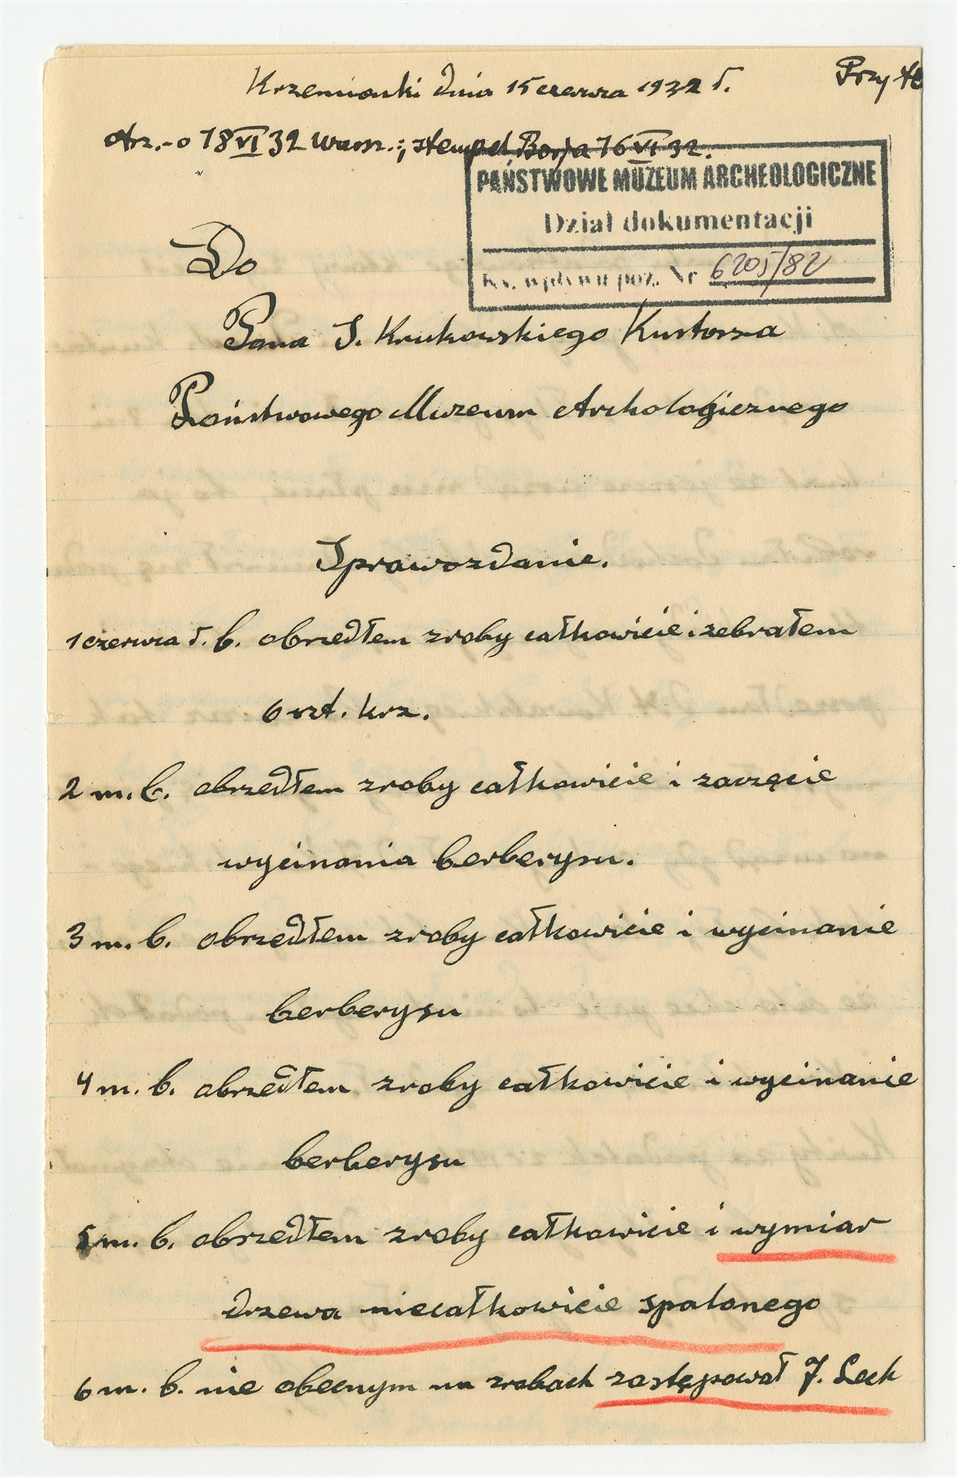 Krzemionki dnia 15 czerwca 1932 r.
Przy
Otrz.-o 18 VI 32 Warsz.; stempel Borja 16 VI 32.
PAŃSTWOWE MUZEUM ARCHEOLOGICZNE
Dział dokumentacji
Ks. wpływu poz. Nr 6205/82
Do
Pana S. Krukowskiego Kustosza
Państwowego Muzeum Archologicznego
Sprawozdanie.
1 czerwca r. b. obszedłem zroby całkowicie i zebrałem
6 szt. krz.
2 m. b. obszedłem zroby całkowicie i zaczęcie
wycinania berberysu.
3 m. b. obrzedłem zroby całkowicie i wycinanie
berberysu
4 m. b. obrzedłem zroby całkowicie i wycinanie
berberysu
5 m. b. obrzedłem zroby całkowicie i wymiar
drzewa niecałkowicie spalonego
6 m. b. nie obecnym na zrobach zastępował J. Lech